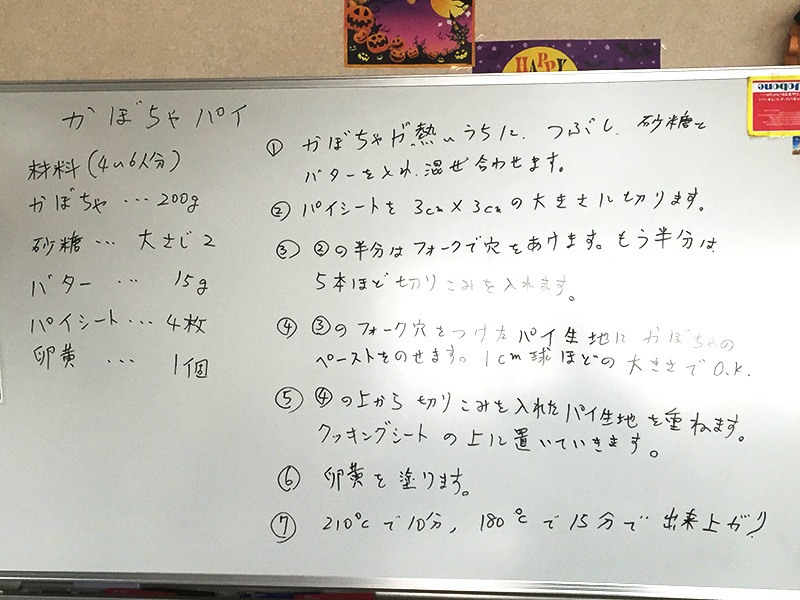 HAPPY
かぼちゃパイ
材料(4〜6人分)
かぼちゃ … 200g
砂糖 … 大さじ2
バター … 15g
パイシート … 4枚
卵黄 … 1個
① かぼちゃが熱いうちに、つぶし、砂糖と
バターを入れ、混ぜ合わせます。
② パイシートを 3cm×3cmの大きさに切ります。
③ ②の半分はフォークで穴をあけます。もう半分は
5本ほど切りこみを入れます。
④ ③のフォーク穴をつけたパイ生地にかぼちゃの
ペーストをのせます。1cm球ほどの大きさでO.K.
⑤ ④の上から切りこみを入れたパイ生地を重ねます。
クッキングシートの上に置いていきます。
⑥ 卵黄を塗ります。
⑦ 210℃で10分, 180℃で15分で出来上がり